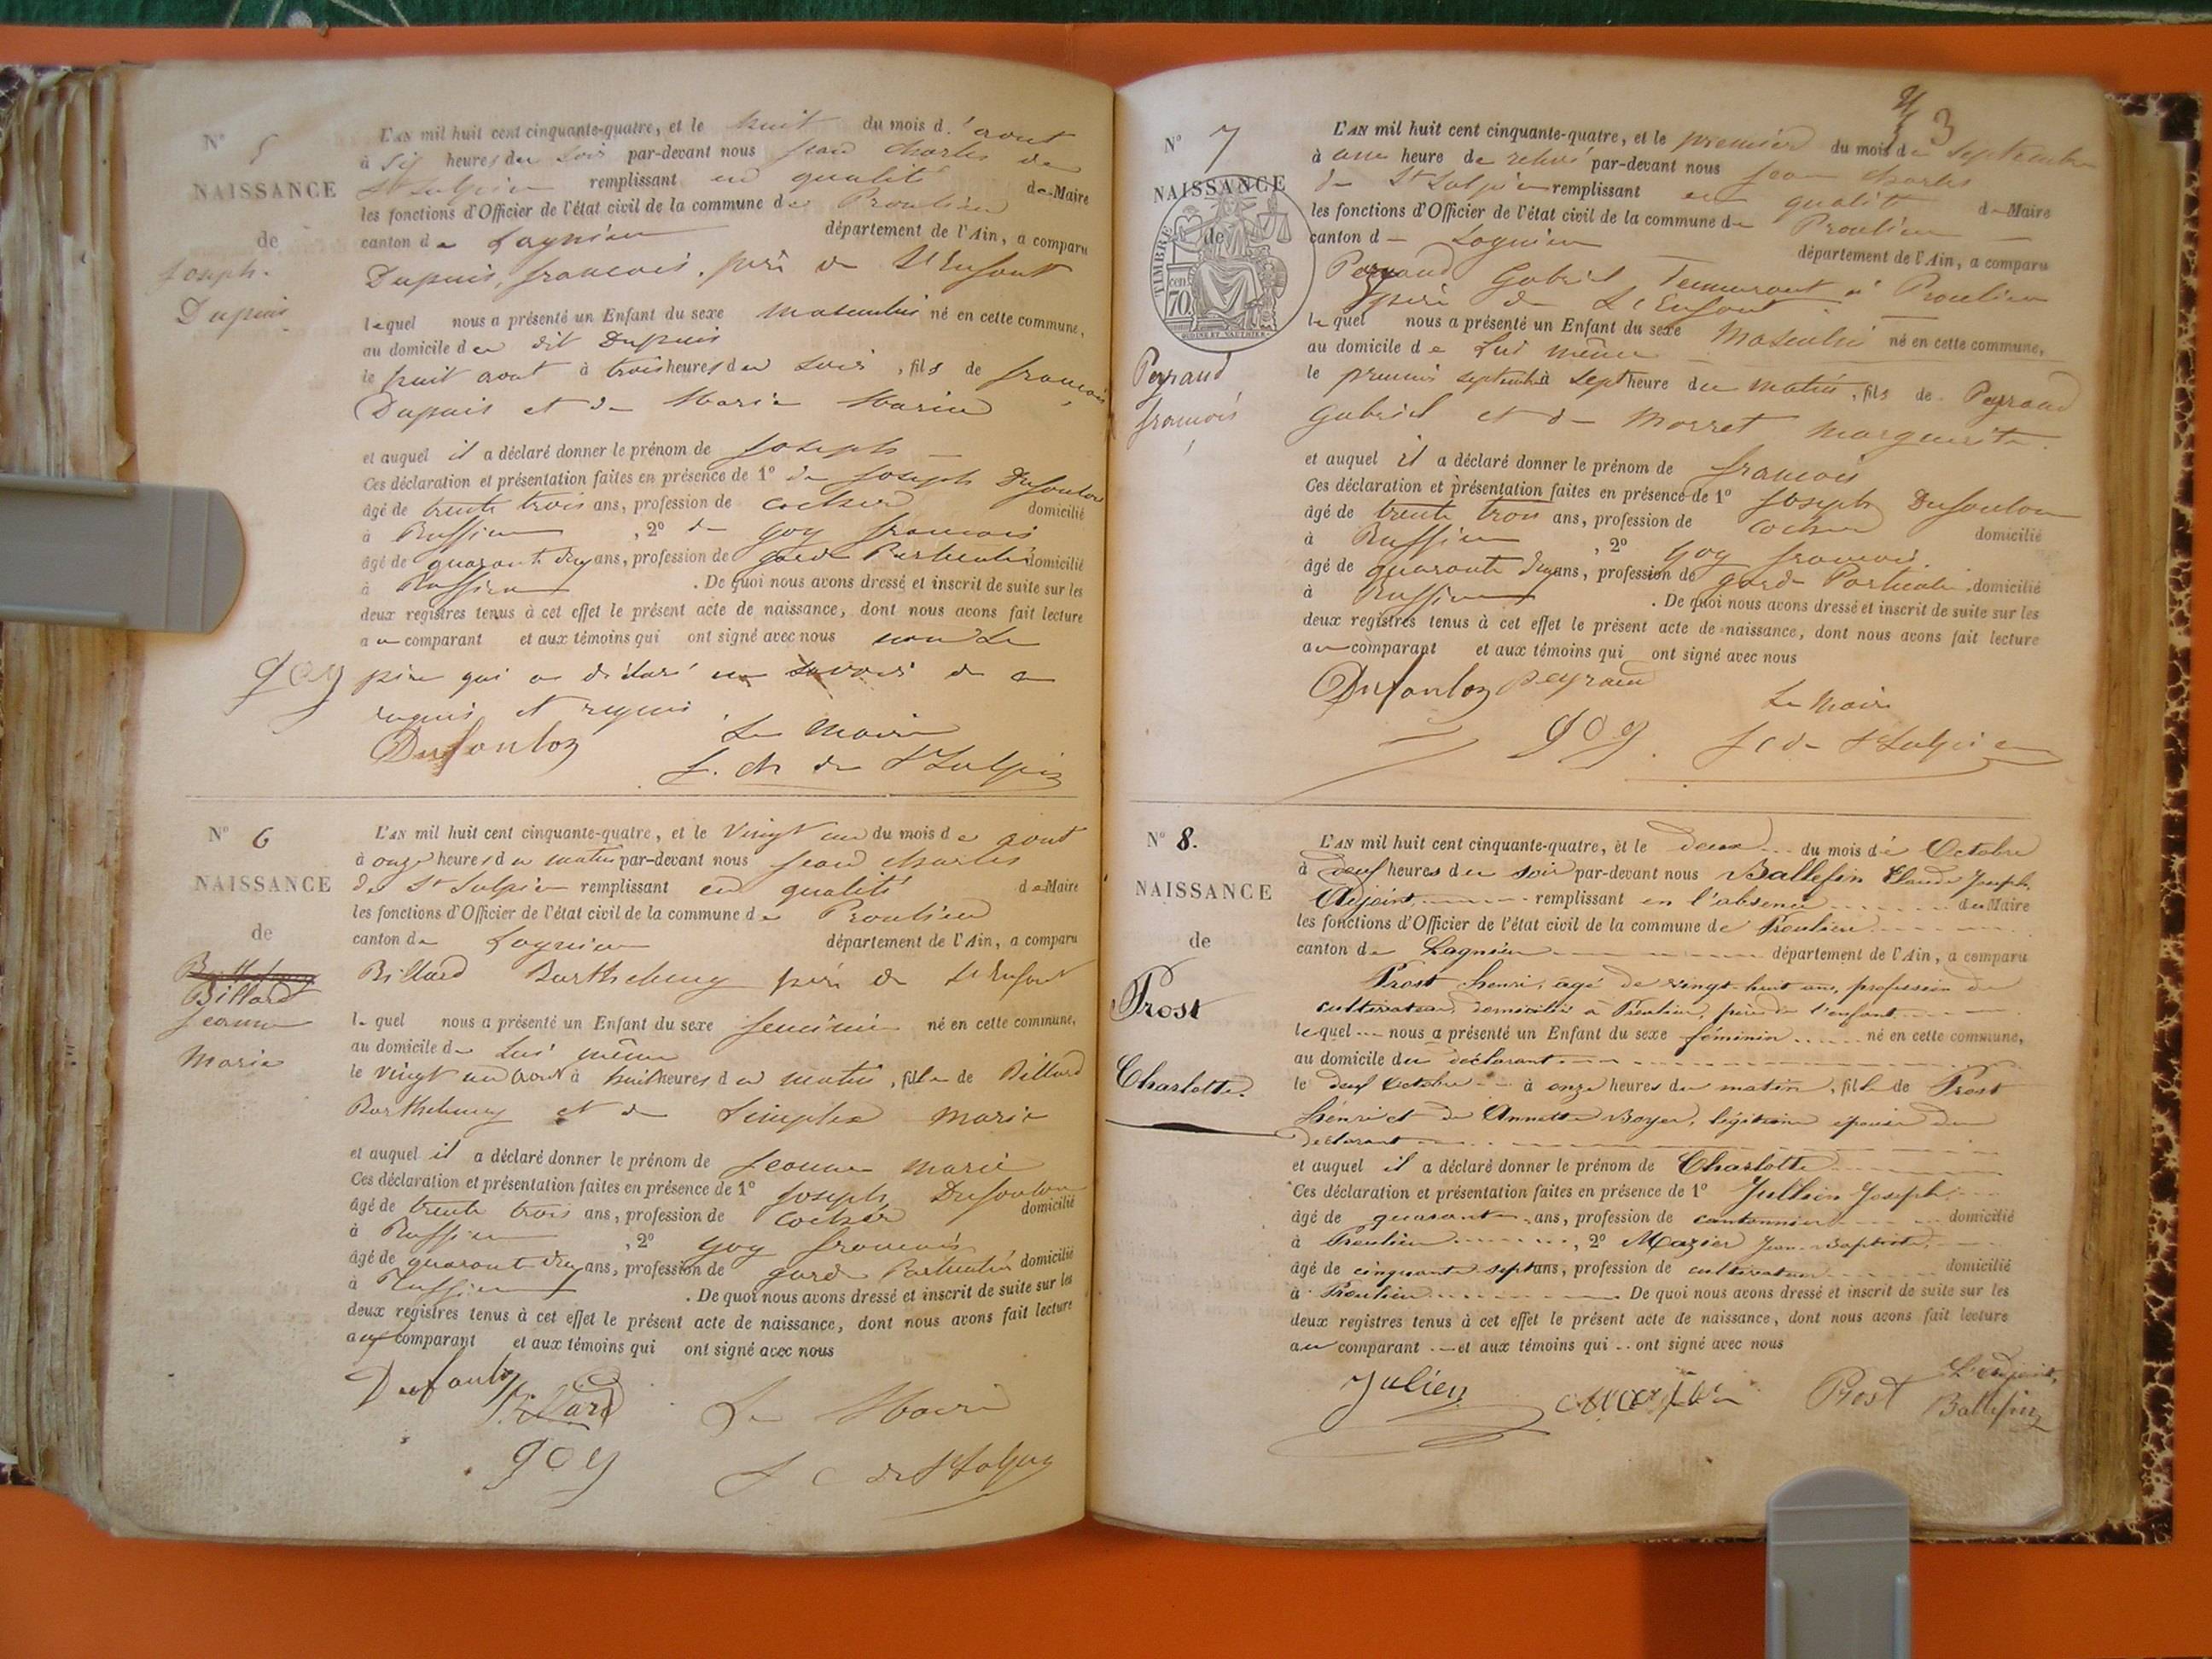 N° 5
NAISSANCE
de
Joseph
Dupuis
L'AN mil huit cent cinquante-quatre, et le huit du mois d'aout
à six heures du soir par-devant nous jean charles de
St Sulpice remplissant en qualité de Maire
les fonctions d'Officier de l'état civil de la commune de Proulieu
canton de Lagnieu département de l'Ain, a comparu
Dupuis, francois, père de l'Enfant
lequel nous a présenté un Enfant du sexe masculin né en cette commune,
au domicile du dit Dupuis
le huit aout à trois heures du soir, fils de francois
Dupuis et de Marie Marin
et auquel il a déclaré donner le prénom de joseph
Ces déclaration et présentation faites en présence de 1° de joseph Dufoulon
âgé de trente trois ans, profession de cocher domicilié
à Ruffieu, 2° de goy francois
âgé de quarante deux ans, profession de garde Particulié domicilié
à Ruffieu. De quoi nous avons dressé et inscrit de suite sur les
deux registres tenus à cet effet le présent acte de naissance, dont nous avons fait lecture
au comparant et aux témoins qui ont signé avec nous non le
goy père qui a déclaré ne savoir de ce
enquis et requis
Dufouloz Le Maire
J. ch de St Sulpice
N° 6
NAISSANCE
de
Billard
jeanne
Marie
L'AN mil huit cent cinquante-quatre, et le vingt un du mois de aout
à onze heures du matin par-devant nous jean charles
de St Sulpice remplissant en qualité de Maire
les fonctions d'Officier de l'état civil de la commune de Proulieu
canton de Lagnieu département de l'Ain, a comparu
Billard Barthelemy père de l'Enfant
le quel nous a présenté un Enfant du sexe feminin né en cette commune,
au domicile de lui même
le vingt un aout à huit heures du matin, fille de Billard
Barthelemy et de Simplex marie
et auquel il a déclaré donner le prénom de jeanne marie
Ces déclaration et présentation faites en présence de 1° joseph Dufoulon
âgé de trente trois ans, profession de cocher domicilié
à Ruffieu, 2° goy francois
âgé de quarante deux ans, profession de garde Particulié domicilié
à Ruffieu. De quoi nous avons dressé et inscrit de suite sur les
deux registres tenus à cet effet le présent acte de naissance, dont nous avons fait lecture
au comparant et aux témoins qui ont signé avec nous
Dufouloz Billard Le Maire
goy J C de St Sulpice
3
N° 7
NAISSANCE
de
TIMBRE
cen. 70
Peyraud
francois
L'AN mil huit cent cinquante-quatre, et le premier du mois de septembre
à une heure de relevé par-devant nous jean charles
de St Sulpice remplissant en qualité de Maire
les fonctions d'Officier de l'état civil de la commune de Proulieu
canton de Lagnieu département de l'Ain, a comparu
Peyraud Gabriel demeurant à Proulieu
père de l'Enfant
le quel nous a présenté un Enfant du sexe masculin né en cette commune,
au domicile de lui même
le premier septembre à sept heure du matin, fils de Peyraud
Gabriel et de Morret marguerite
et auquel il a déclaré donner le prénom de francois
Ces déclaration et présentation faites en présence de 1° joseph Dufoulon
âgé de trente trois ans, profession de cocher domicilié
à Ruffieu, 2° goy francois
âgé de quarante deux ans, profession de garde Particulié domicilié
à Ruffieu. De quoi nous avons dressé et inscrit de suite sur les
deux registres tenus à cet effet le présent acte de naissance, dont nous avons fait lecture
au comparant et aux témoins qui ont signé avec nous
Dufouloz peyraud Le Maire
goy J C de St Sulpice
N° 8.
NAISSANCE
de
Prost
Charlotte.
L'AN mil huit cent cinquante-quatre, et le deux du mois de Octobre
à neuf heures du soir par-devant nous Ballefin Claude Joseph,
Adjoint, remplissant en l'absence du Maire
les fonctions d'Officier de l'état civil de la commune de Proulieu
canton de Lagnieu département de l'Ain, a comparu
Prost henri, âgé de vingt-huit ans, profession de
cultivateur, domicilié à Proulieu, père de l'enfant
lequel nous a présenté un Enfant du sexe féminin né en cette commune,
au domicile du déclarant
le deux Octobre à onze heures du matin, fille de Prost
henri et de Annette Boyer, légitime épouse du
déclarant
et auquel il a déclaré donner le prénom de Charlotte
Ces déclaration et présentation faites en présence de 1° Jullien Joseph
âgé de quarante ans, profession de cantonnier domicilié
à Proulieu, 2° Mazier Jean-Baptiste
âgé de cinquante-sept ans, profession de cultivateur domicilié
à Proulieu. De quoi nous avons dressé et inscrit de suite sur les
deux registres tenus à cet effet le présent acte de naissance, dont nous avons fait lecture
au comparant et aux témoins qui ont signé avec nous
Julien Prost L'adjoint,
Ballefin